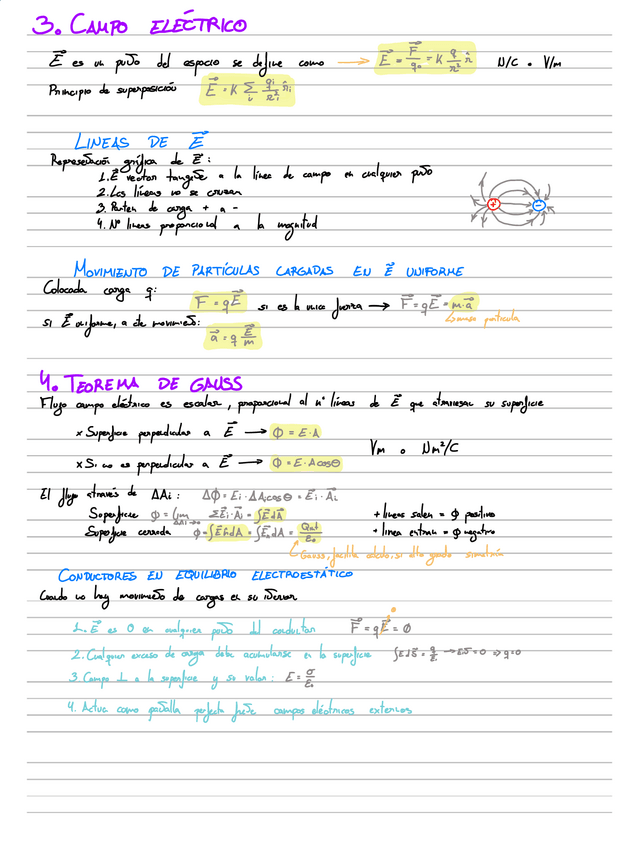 3. CAMPO ELÉCTRICO
E⃗ es un punto del espacio se define como → E⃗ = F⃗/q₀ = K q/r² r̂ N/C o V/m
Principio de superposición E⃗ = K Σᵢ qᵢ/rᵢ² r̂ᵢ
LINEAS DE E⃗
Representación gráfica de E⃗:
1. E⃗ vector tangente a la línea de campo en cualquier punto
2. Las líneas no se cruzan
3. Parten de carga + a -
4. Nº lineas proporcional a la magnitud
+ -
MOVIMIENTO DE PARTÍCULAS CARGADAS EN E⃗ UNIFORME
Colocada carga q:
F⃗ = qE⃗ si es la unica fuerza → F⃗ = qE⃗ = m·a⃗
masa partícula
si E⃗ uniforme, a cte movimiento:
a⃗ = q E⃗/m
4. TEOREMA DE GAUSS
Flujo campo eléctrico es escalar, proporcional al nº líneas de E⃗ que atraviesan su superficie
x Superficie perpendicular a E⃗ → Φ = E·A
Vm o Nm²/C
x Si no es perpendicular a E⃗ → Φ = E·A cosΘ
El flujo através de ΔAi: ΔΦ = Ei·ΔAi cosΘ = E⃗i·A⃗i
Superficie Φ = lim ΔAi→0 ΣE⃗i·A⃗i = ∫E⃗dA⃗ + lineas salen = Φ positivo
Superficie cerrada Φ = ∫E⃗n̂dA = ∫E⃗ₙdA = Qint/ε₀ + linea entran = Φ negativo
Gauss, facilita cálculo, si alto grado simetría
CONDUCTORES EN EQUILIBRIO ELECTROESTÁTICO
Cuando no hay movimiento de cargas en su interior
1. E⃗ es 0 en cualquier punto del conductor F⃗ = qE⃗ = 0
2. Cualquier exceso de carga debe acumularse en la superficie ∫E⃗dS⃗ = q/ε₀ → E⃗S⃗ = 0 ⇒ q=0
3. Campo ⊥ a la superficie y su valor: E = σ/ε₀
4. Actua como pantalla perfecta frente campos eléctricos externos